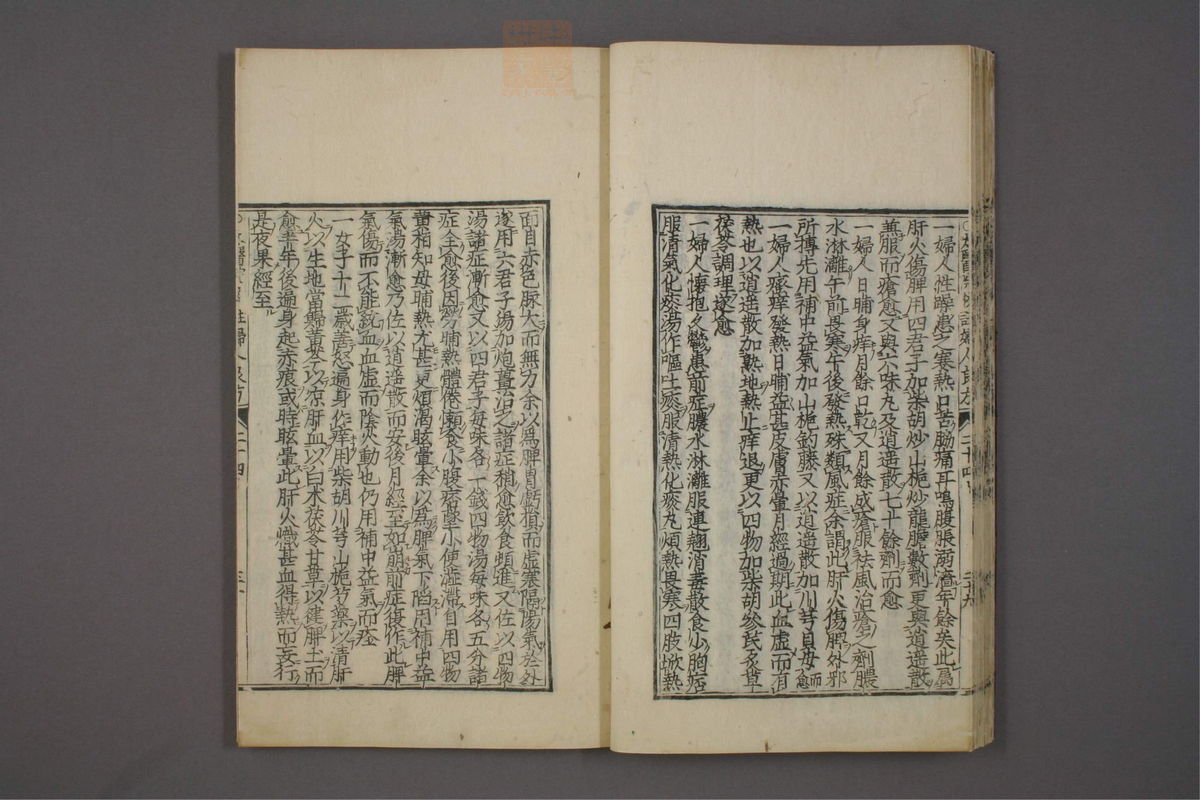 一婦人性躁患之寒熱口苦脇痛耳鳴腹脹溺澁年餘矣此屬
肝火傷脾用四君子加柴胡炒山梔炒龍膽數劑更與逍遙散
兼服而瘡愈又與六味丸及逍遙散七十餘劑而愈
一婦人日晡身痒月餘口乾又月餘成瘡服祛風治瘡之劑膿
水淋漓午前畏寒午後發熱殊類風症余謂此肝火傷脾外邪
所摶先用補中益氣加山梔釣藤又以逍遙散加川芎貝母而愈
一婦人瘙痒發熱日晡益甚皮膚赤暈月經過期此血虛而有
熱也以逍遙散加熟地熱止痒退更以四物加柴胡參芪炙草
茯苓調理遂愈
一婦人懷抱久鬱患前症膿水淋漓服連翹消毒散食少胸痞
服清氣化痰湯作嘔吐痰服清熱化痰丸煩熱畏寒四肢厥熱
面目赤色脉大而無力余以爲脾胃虧損而虛寒隔陽氣於外
遂用六君子湯加炮薑治之諸症稍愈飲食頓進又佐以四物
湯諸症漸愈又以四君子每味各一錢四物湯每味各五分諸
症全愈後因勞晡熱體倦懶食小腹痞墜小便澁滯自用四物
黃柏知母晡熱尤甚更煩渴眩暈余以爲脾氣下陷用補中益
氣湯漸愈乃佐以逍遙散而安後月經至如崩前症復作此脾
氣傷而不能統血血虛而陰火動也仍用補中益氣而痊
一女子十二歲善怒遍身作痒用柴胡川芎山梔芍藥以清肝
火以生地當歸黃芩以凉肝血以白朮茯苓甘草以健脾土而
愈半年後遍身起赤痕或時眩暈此肝火熾甚血得熱而妄行
是夜果經至